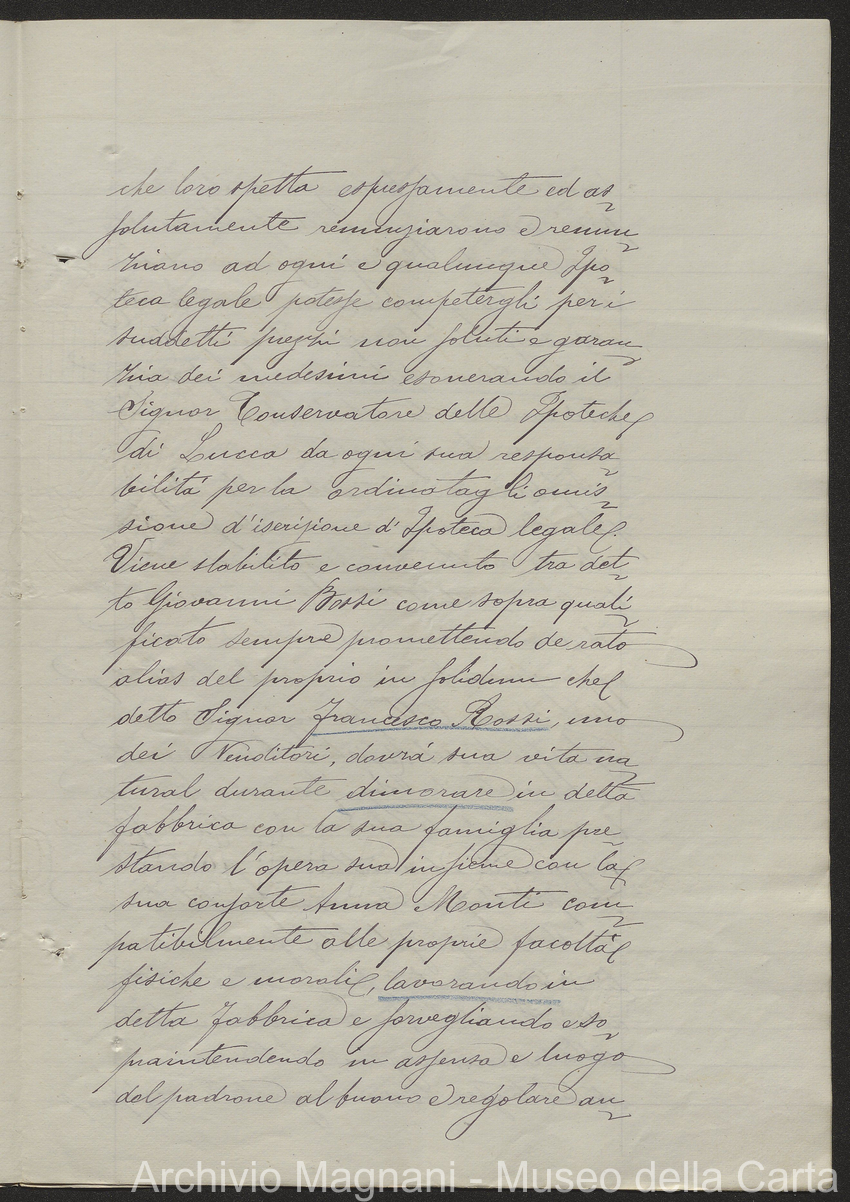 che loro spetta espressamente ed as
solutamente renunziarono e renun
ziano ad ogni e qualunque Ipo
teca legale potesse competergli per i
suddetti prezzi non soluti e garan
zia dei medesimi esonerando il
Signor Conservatore delle Ipoteche
di Lucca da ogni sua responsa
bilità per la ordinatagli omis
sione d'iscrizione d'Ipoteca legale.
Viene stabilito e convenuto tra det
to Giovanni Rossi come sopra quali
ficato sempre promettendo de rato
alias del proprio in solidum che
detto Signor Francesco Rossi, uno
dei Venditori, dovrà sua vita na
tural durante dimorare in detta
fabbrica con la sua famiglia pre
stando l'opera sua insieme con la
sua consorte Anna Monti com
patibilmente alle proprie facoltà
fisiche e morali, lavorando in
detta fabbrica e sorvegliando e so
praintendendo in assenza e luogo
del padrone al buono e regolare an
Archivio Magnani - Museo della Carta